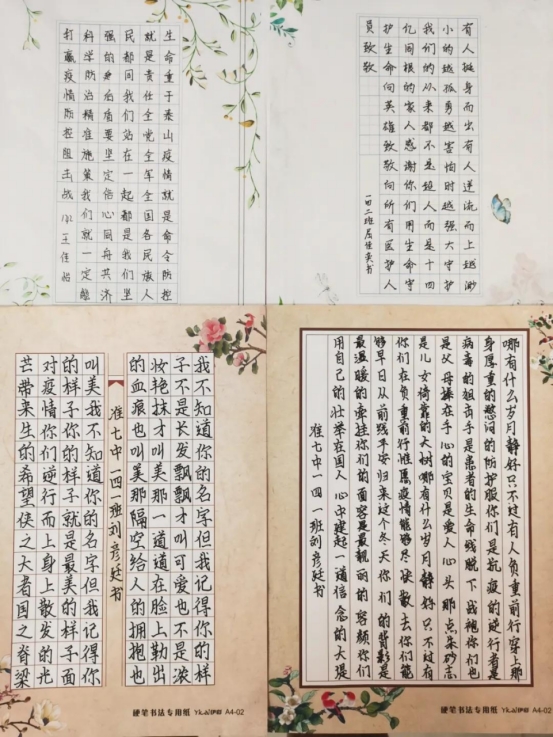 生命重于泰山疫情就是命令防控
就是责任全党全军全国各民族人
民都同我们站在一起都是我们坚
强的后盾要坚定信心同舟共济
科学防治精准施策我们就一定能
打赢疫情防控阻击战 142 王佳怡
有人挺身而出有人逆流而上越渺
小的越孤勇越害怕时越强大守护
我们的从来都不是超人而是十四
亿同根的家人感谢你们用生命守
护生命向英雄致敬向所有医护人
员致敬
一四二班屈佳奕书
我不知道你的名字但我记得你的样
子不是长发飘飘才叫可爱也不是浓
妆艳抹才叫美那一道道在脸上勒出
的血痕也叫美那隔空给人的拥抱也
准七中一四一班刘彦廷书
叫美我不知道你的名字但我记得你
的样子你的样子就是最美的样子面
对疫情你们逆行而上身上散发的光
芒带来生的希望侠之大者国之脊梁
硬笔书法专用纸 A4-02
哪有什么岁月静好只不过有人负重前行穿上那
身厚重的憋闷的防护服你们是抗疫的逆行者是
病毒的狙击手是患者的生命线脱下战袍你们也
是父母捧在手心的宝贝是爱人心头那点朱砂志
是儿女倚靠的大树哪有什么岁月静好只不过有
你们在负重前行惟愿疫情能够尽快散去你们能
够早日从前线平安归来这个冬天你们的背影是
最温暖的牵挂你们的面容是最靓丽的容颜你们
用自己的壮举在国人心中建起一道信念的大堤
准七中一四一班刘彦廷书
硬笔书法专用纸 A4-02